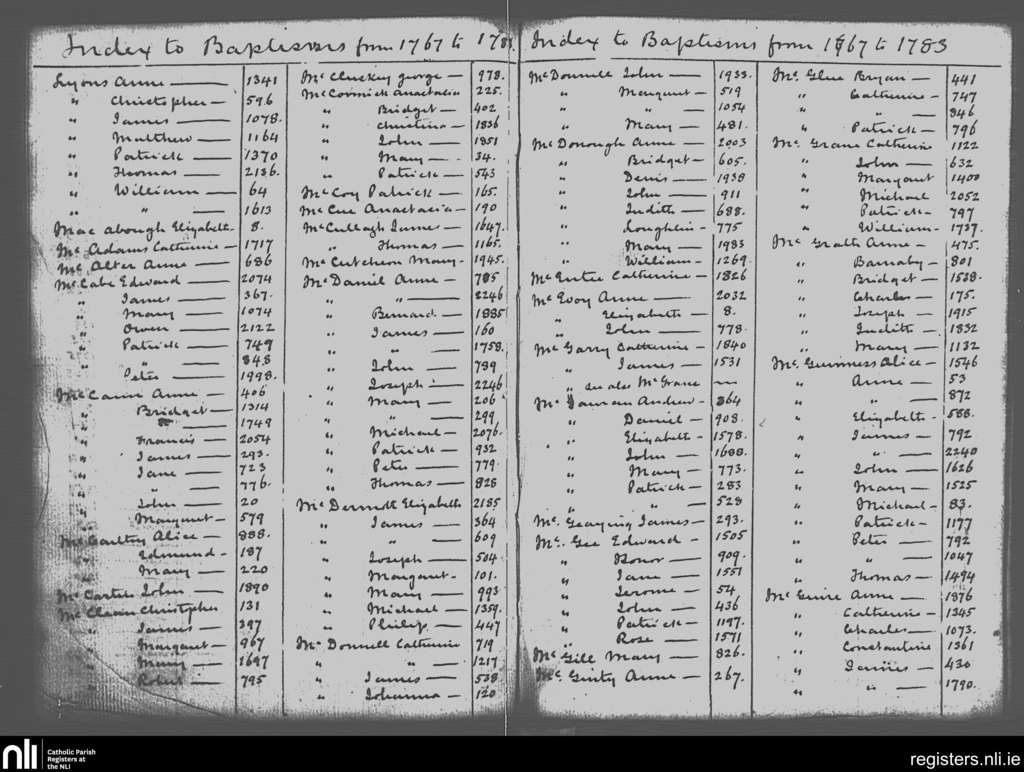 Index to Baptisms from 1767 to 178
Lyons Anne — 1341
" Christopher — 596
" James — 1078.
" Matthew — 1164
" Patrick — 1370
" Thomas — 2136.
" William — 64
" " — 1613
Mac abough Elizabeth 8.
Mc Adams Catherine — 1717
Mc Alter Anne — 686
Mc Cabe Edward — 2074
" James — 367.
" Mary — 1074
" Owen — 2122
" Patrick — 749
" " — 848
" Peter — 1998.
Mc Cann Anne — 406
" Bridget — 1314
" — 1749
" Francis — 2054
" James — 293.
" Jane — 723
" " — 776.
" John — 20
" Margaret — 579
Mc Caultry Alice — 888.
" Edmund — 187
" Mary — 220
Mc Carter John — 1890
Mc Clean Christopher 131
" James — 397
" Margaret — 967
" Mary — 1697
" Robert — 795
Mc Cluskey george — 978.
Mc Cormick Anastacia 225.
" Bridget — 402
" Christina — 1836
" John — 1851
" Mary — 34.
" Patrick — 543
Mc Coy Patrick — 165.
Mc Cue Anastacia — 190
Mc Cullagh James — 1647.
" Thomas — 1165.
Mc Cutcheon Mary — 1945.
Mc Daniel Anne — 785
" " — 2246
" Bernard — 1885
" James — 160
" " — 1758.
" John — 739
" Joseph — 2246
" Mary — 206
" " — 299
" Michael — 2076.
" Patrick — 932
" Peter — 779.
" Thomas — 828
Mc Dermott Elizabeth 2185
" James — 364
" " — 609
" Joseph — 504
" Margaret - 101.
" Mary — 993
" Michael — 1359.
" Philip — 447
Mc Donnell Catherine 719
" " — 1217
" James — 538
" Johanna — 120
Index to Baptisms from 1767 to 1783
Mc Donnell John — 1933.
" Margaret — 519
" " — 1054
" Mary — 481.
Mc Donough Anne — 2003
" Bridget — 605.
" Denis — 1938
" John — 911
" Judith — 688.
" Loughlin — 775
" Mary — 1983
" William — 1269.
Mc Entee Catherine — 1826
Mc Evoy Anne — 2032
" Elizabeth — 8.
" John — 778.
Mc Garry Catherine — 1840
" James — 1531
" see also Mc Grane —
Mc Gauran Andrew — 864
" Daniel — 908.
" Elizabeth — 1578.
" John — 1688.
" Mary — 773.
" Patrick — 283
" " — 528
Mc Geaying James — 293.
Mc Gee Edward — 1505
" Honor — 909.
" Jane — 1551
" Jerome — 54
" John — 436
" Patrick — 1197.
" Rose — 1571
Mc Gill Mary — 826.
Mc Ginty Anne — 267.
Mc Glue Bryan — 441
" Catherine — 747
" " — 846
" Patrick — 796
Mc Grane Catherine 1122
" John — 632
" Margaret 1400
" Michael 2052
" Patrick — 797
" William — 1737.
Mc Grath Anne — 475.
" Barnaby — 801
" Bridget — 1538.
" Charles — 175.
" Joseph — 1915
" Judith — 1832
" Mary — 1132
Mc Guinness Alice — 1546
" Anne — 53
" " — 872
" Elizabeth — 588.
" James — 792
" " — 2240
" John — 1626
" Mary — 1525
" Michael — 83.
" Patrick — 1177
" Peter — 792
" " — 1047
" Thomas — 1494
Mc Guire Anne — 1876
" Catherine — 1345
" Charles — 1073.
" Constantine 1361
" James — 430
" " — 1790.
nli
Catholic Parish
Registers at
the NLI
registers.nli.ie